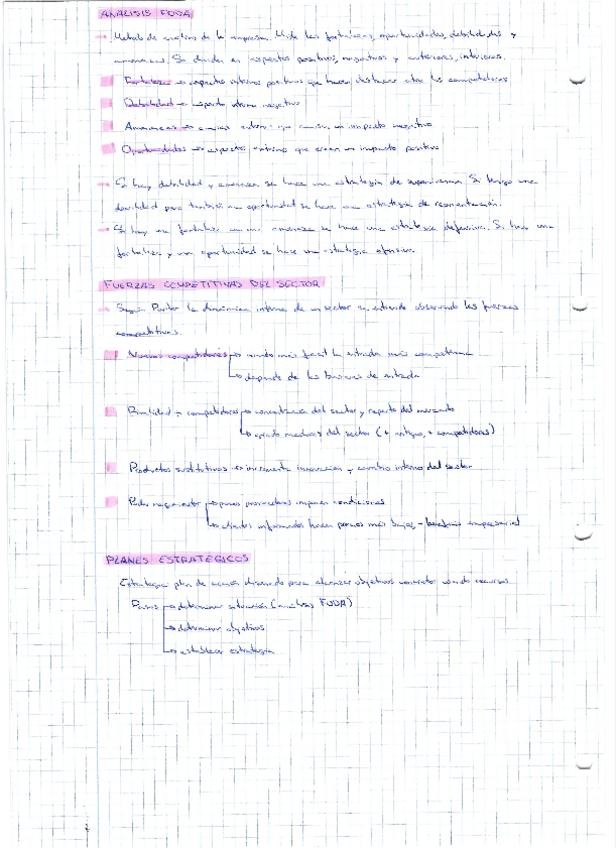 ANALISIS FODA
→ Metodo de analisis de la empresa. Mide las fortalezas, oportunidades, debilidades y
amenazas. Se dividen en aspectos positivos, negativos y exteriores, interiores.
Fortaleza → aspectos internos positivos que hacen destacar sobre los competidores
Debilidad → aspecto interno negativo
Amenazas → externo que un impacto negativo
Oportunidades → aspectos externos que crean un impacto positivo
→ Si hay debilidad y amenaza se hace una estrategia de supervivencia. Si tengo una
debilidad pero tambien una oportunidad se hace una estrategia de reorientación.
→ Si hay una fortaleza y una amenaza se hace una estrategia defensiva. Si hay una
fortaleza y una oportunidad se hace una estrategia ofensiva.
FUERZAS COMPETITIVAS DEL SECTOR
→ Según Porter la dinámica interna de un sector se entiende observando las fuerzas
competitivas.
Nuevos competidores → cuando más facil la entrada más competencia
→ depende de las barreras de entrada
Rivalidad → competidores → concentración del sector y reparto del mercado
→ grado madurez del sector (+ antiguo, + competidores)
Productos sustitutivos → incrementa innovacion y cambio interno del sector
Poder negociador → pocos proveedores imponen condiciones
→ clientes informados hacen precios más bajos, - beneficio empresarial
PLANES ESTRATÉGICOS
Estrategia: plan de acción diseñado para alcanzar objetivos concretos usando recursos
Pasos → determinar situación (análisis FODA)
→ determinar objetivos
→ establecer estrategia